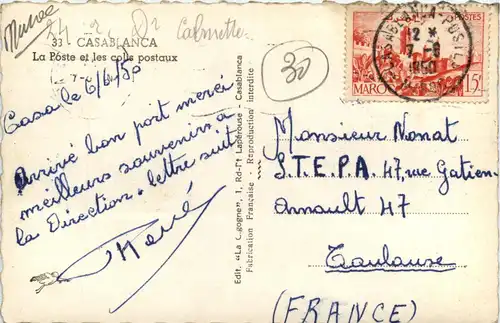 Maroc
24 rue Dr Calmette
33 - CASABLANCA
La Poste et les colis postaux
Casa le 6/6/50
Arrivé bon port merci
meilleurs souvenirs à
la Direction. lettre suit
Hervé
Edit. "La Cigogne", 1, Rd-Pt Lapérouse - Casablanca
Fabrication Française - Reproduction interdite
30
POSTES
MAROC
15F
12 *
7-6
1950
Monsieur Nonat
S.T.E.P.A. 47, rue Gatien-
Arnault 47
Toulouse
(FRANCE)